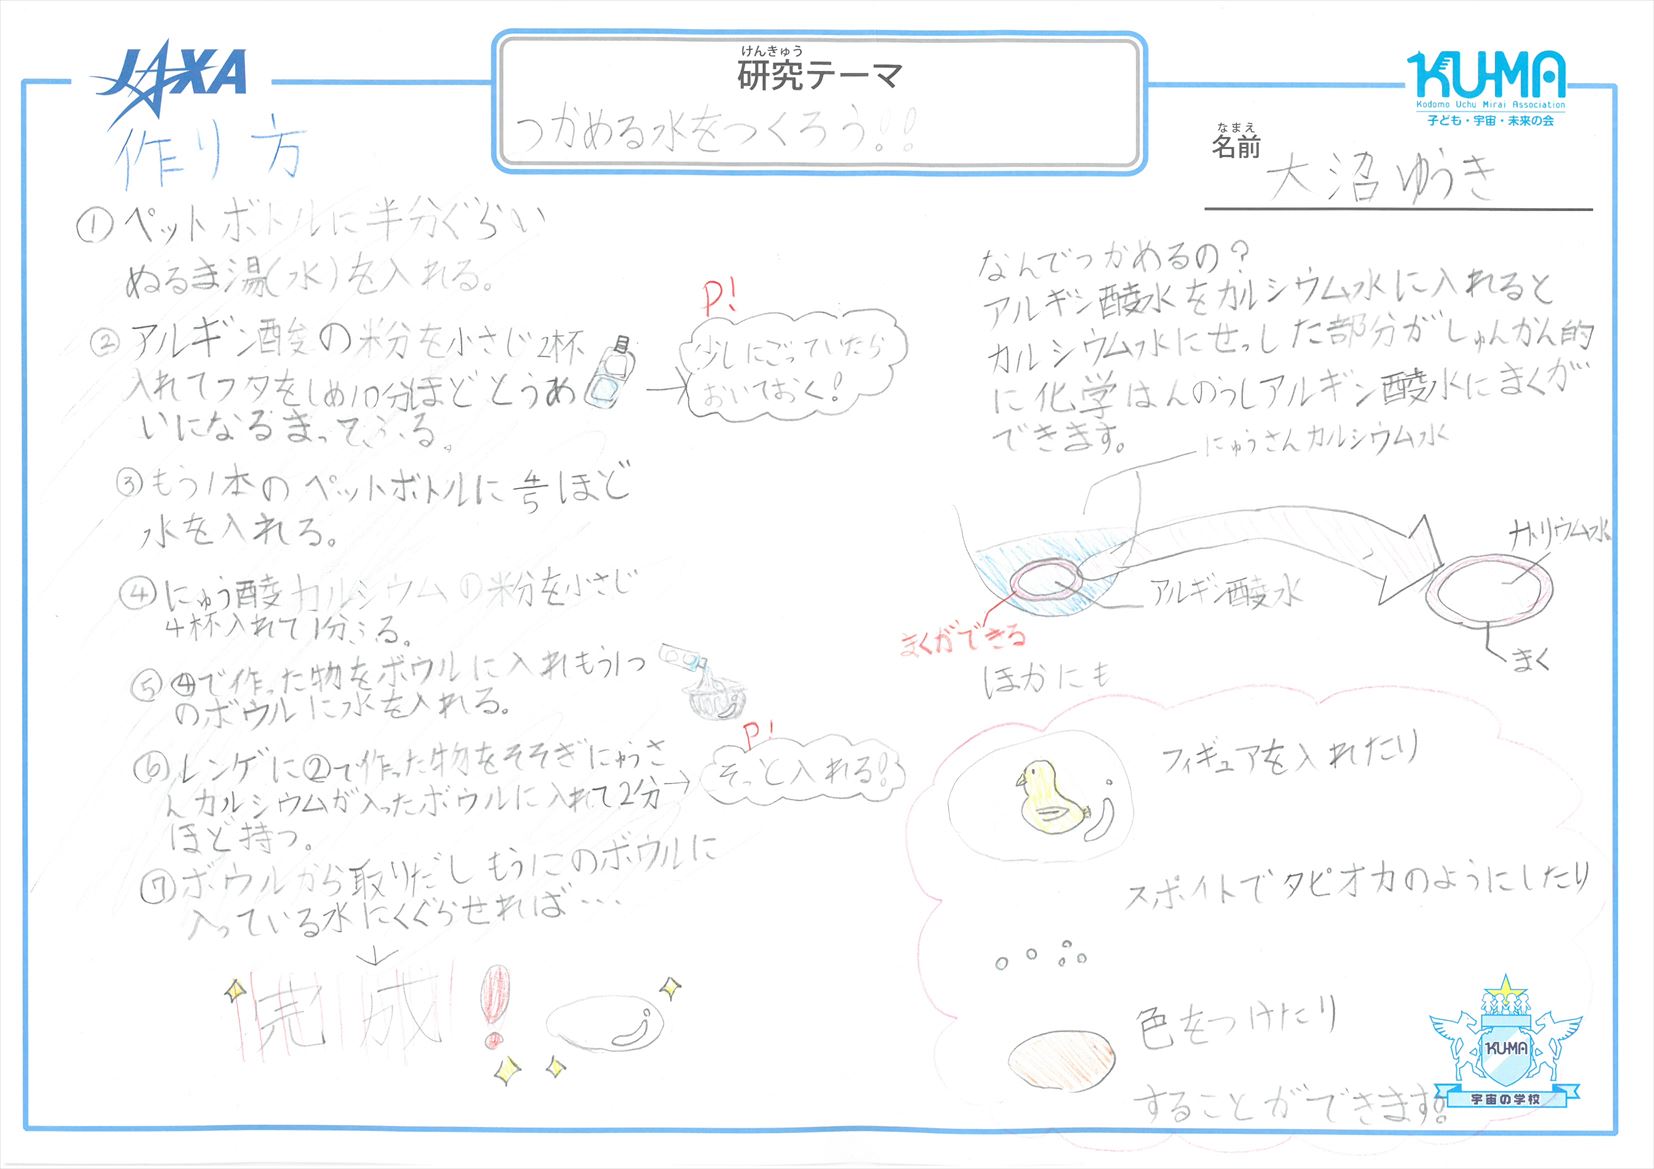 JAXA
けんきゅう
研究テーマ
つかめる水をつくろう!!
KU-MA
Kodomo Uchu Mirai Association
子ども・宇宙・未来の会
なまえ
名前
大沼ゆうき
作り方
①ペットボトルに半分ぐらい
ぬるま湯(水)を入れる。
②アルギン酸の粉分を小さじ2杯
入れてフタをしめ10分ほどとうめ
いになるまってふる。
P!
少しにごっていたら
おいておく!
③もう1本のペットボトルに4/5ほど
水を入れる。
④にゅう酸カルシウムの粉分を小さじ
4杯入れて1分ふる。
⑤④で作った物をボウルに入れもう1つ
のボウルに水を入れる。
⑥レンゲに②で作った物をそそぎにゅうさ
んカルシウムが入ったボウルに入れて2分
ほど持つ。
P!
そっと入れる!
⑦ボウルから取りだしもう1このボウルに
入っている水にくぐらせれば…
完成!
なんでつかめるの?
アルギン酸水をカルシウム水に入れると
カルシウム水にせっした部分がしゅんかん的
に化学はんのうしアルギン酸水にまくが
できます。
にゅうさんカルシウム水
アルギン酸水
まくができる
ナトリウム水
まく
ほかにも
フィギュアを入れたり
スポイトでタピオカのようにしたり
色をつけたり
することができます!
KU-MA
宇宙の学校